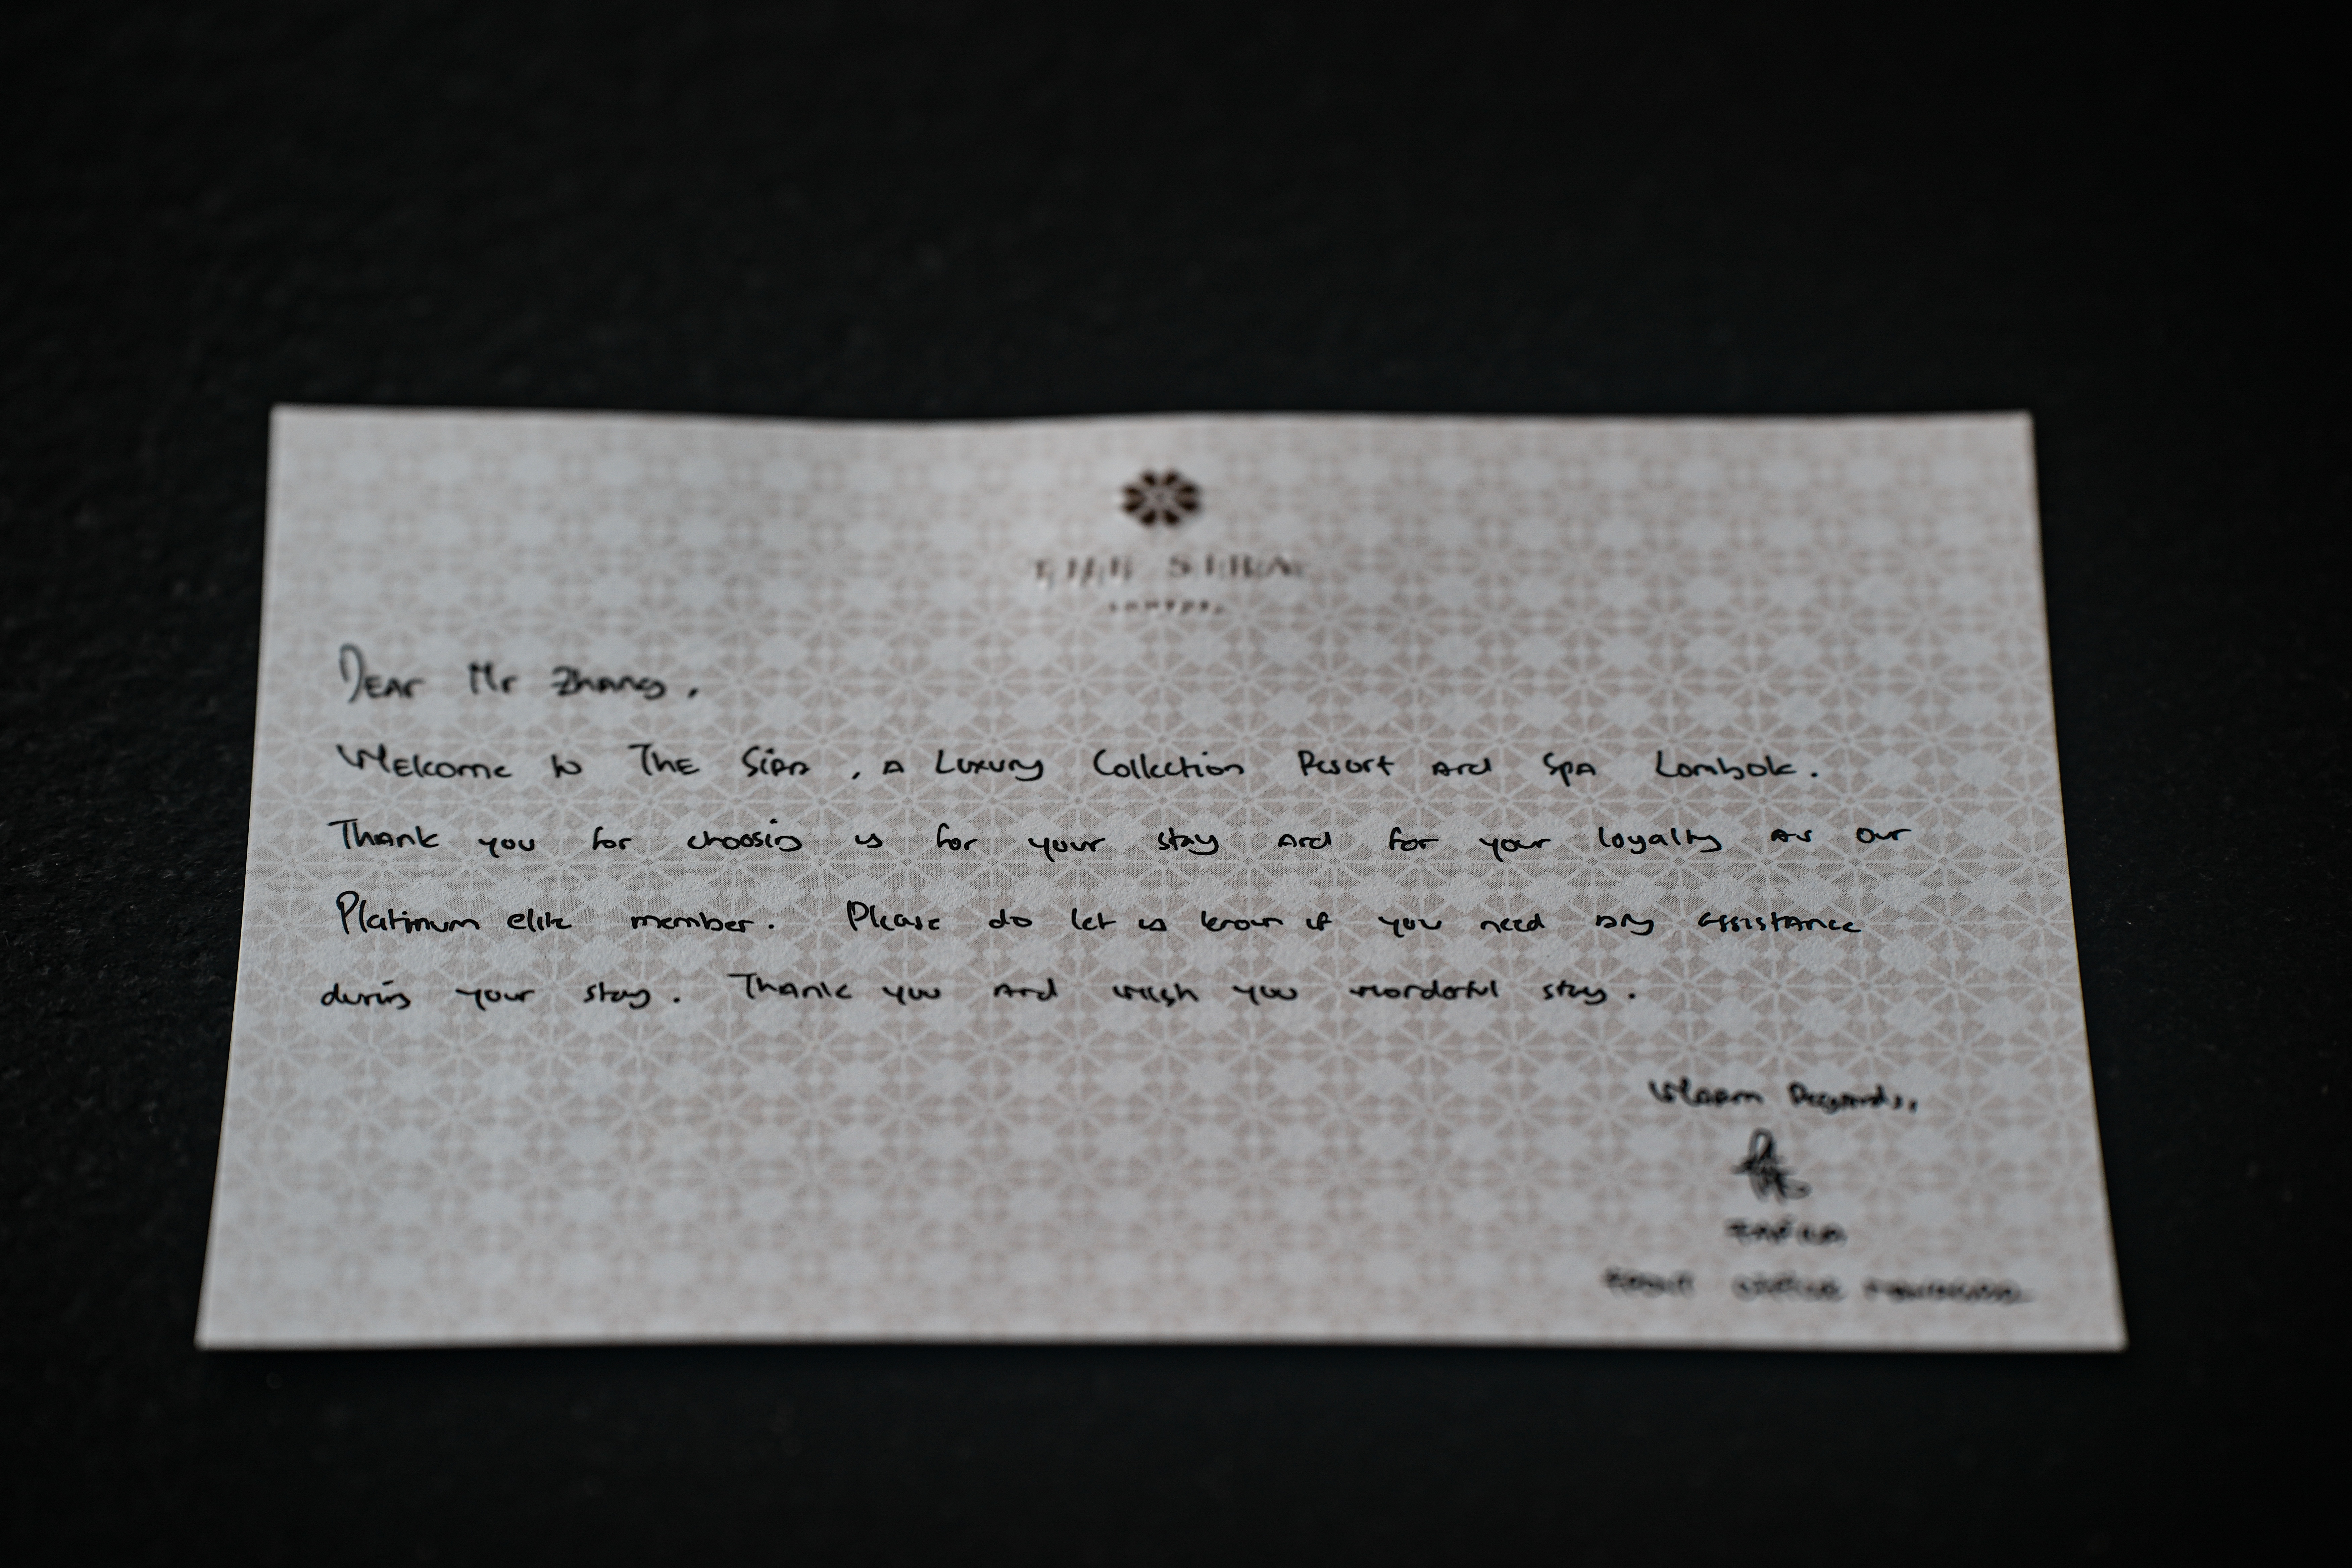 THE SIRA
LOMBOK
Dear Mr Zhang,
Welcome to The Sira, a Luxury Collection Resort and Spa Lombok.
Thank you for choosing us for your stay and for your loyalty as our
Platinum elite member. Please do let us know if you need any assistance
during your stay. Thank you and wish you wonderful stay.
Warm Regards,